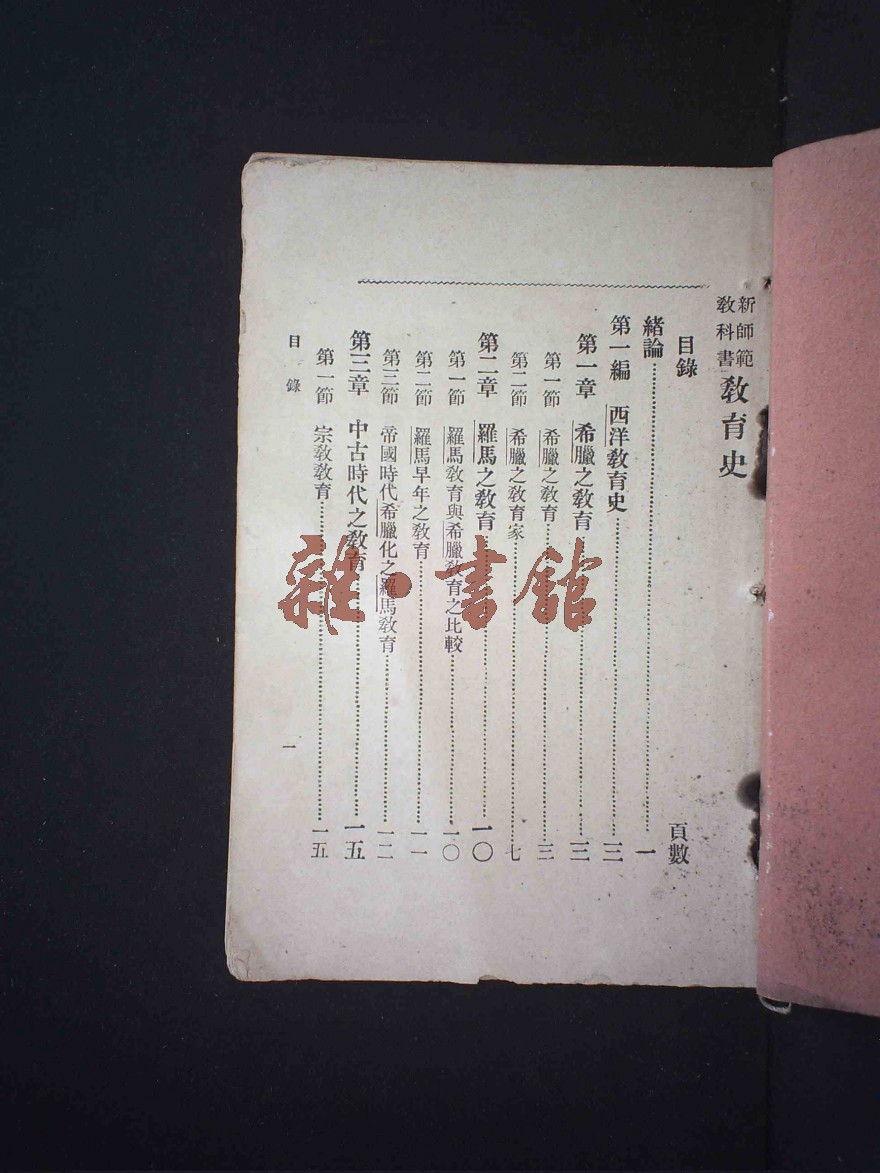 新師範教科書 教育史
目錄 頁數
緒論……一
第一編 西洋教育史……三
第一章 希臘之教育……三
第一節 希臘之教育……三
第二節 希臘之教育家……七
第二章 羅馬之教育……一〇
第一節 羅馬教育與希臘教育之比較……一〇
第二節 羅馬早年之教育……一一
第三節 帝國時代希臘化之羅馬教育……一二
第三章 中古時代之教育……一五
第一節 宗教教育……一五
目錄 一
雜·書館